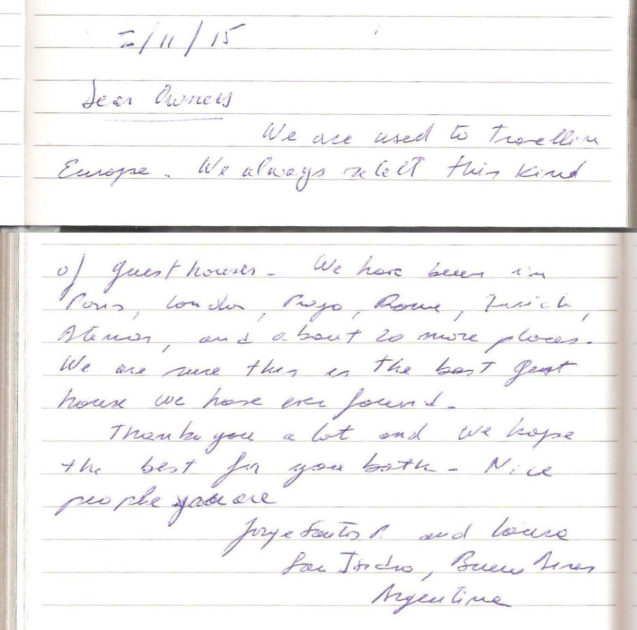 /11/15
Dear Owners
We are used to travell in
Europe. We always select this kind
of guest houses. We have been in
Paris, London, Praga, Rome, Zurich,
Atenas, and about 20 more places.
We are sure this is the best guest
house we have ever found.
Thank you a lot and we hope
the best for you both. Nice
people you are
Jorge Santos P. and Laura
San Isidro, Buenos Aires
Argentina